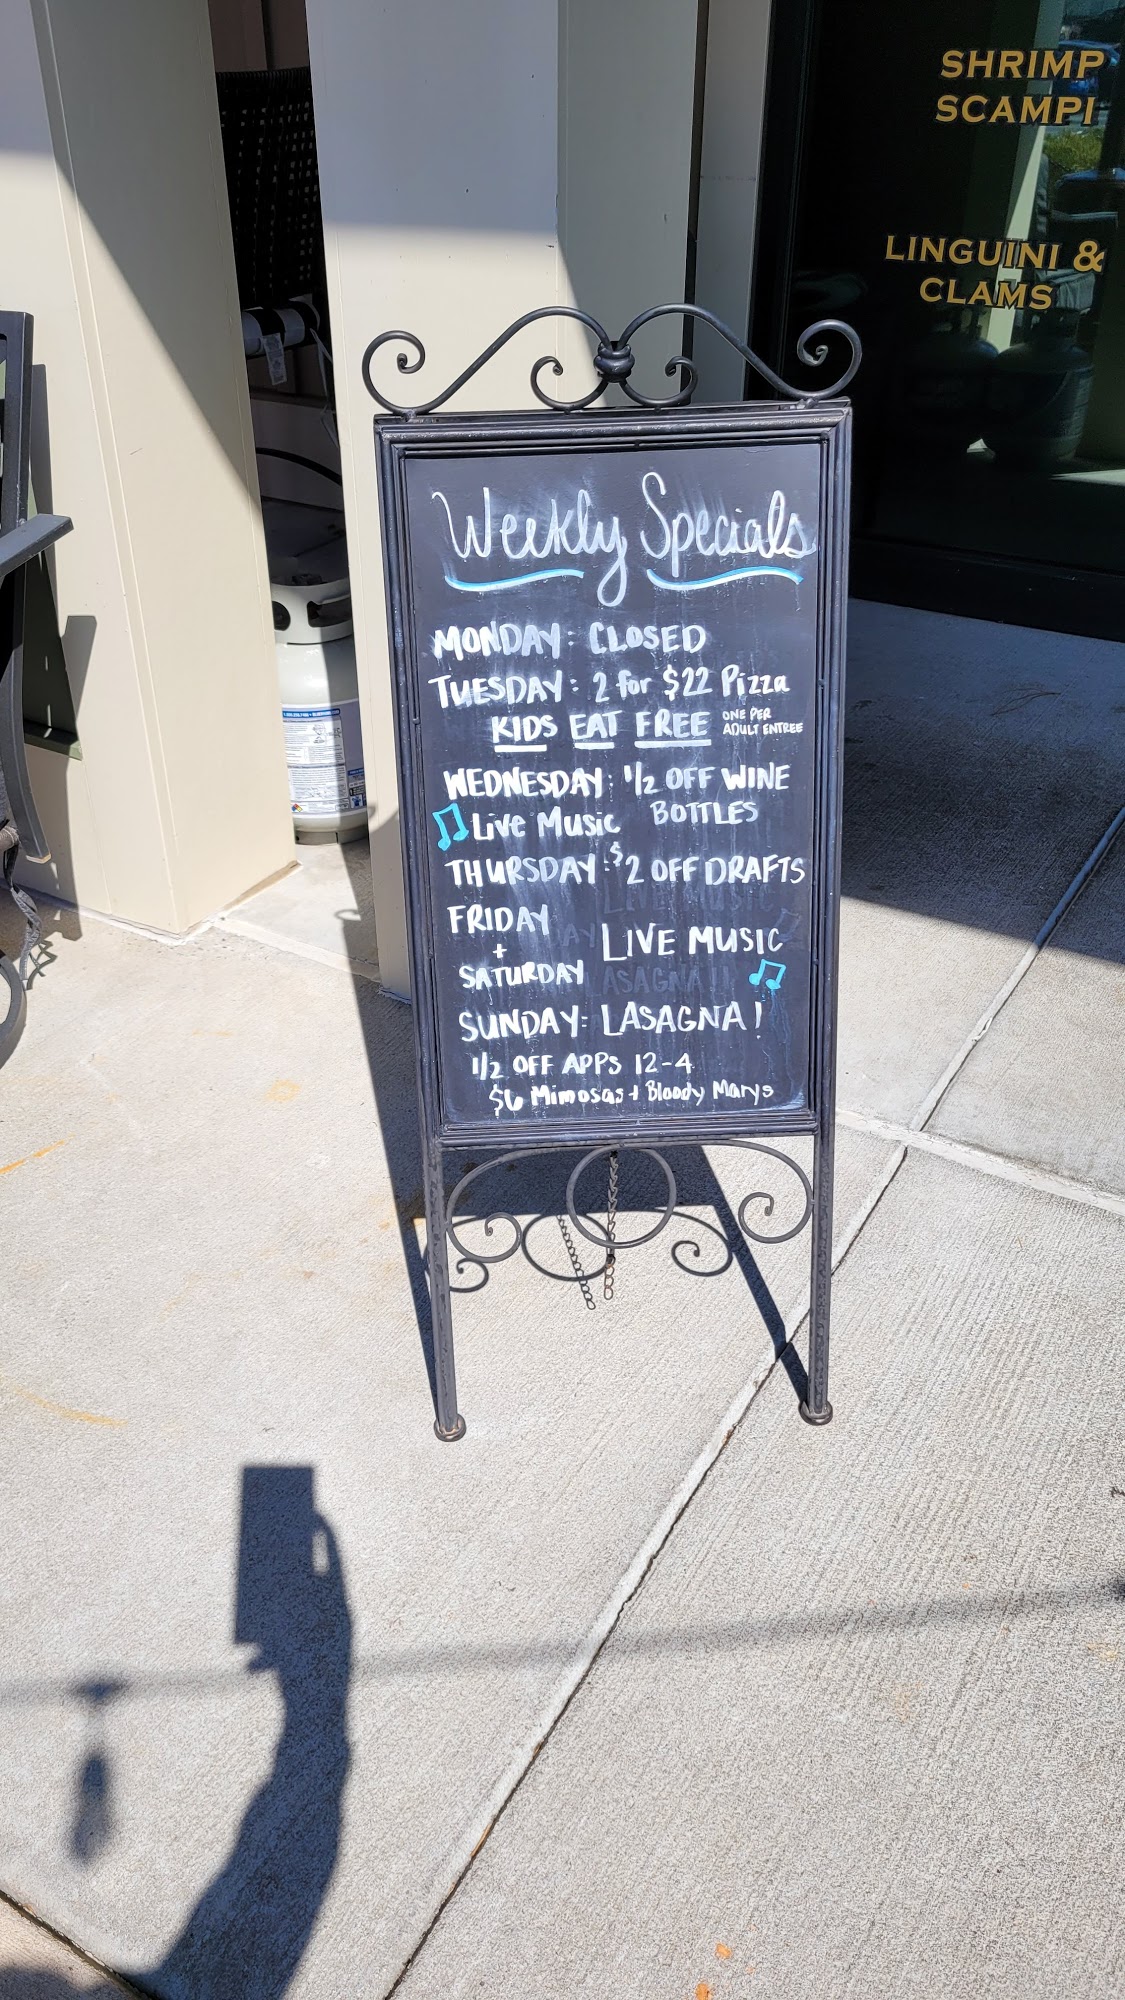 SHRIMP
SCAMPI
LINGUINI &
CLAMS
Weekly Specials
MONDAY: CLOSED
TUESDAY: 2 for $22 Pizza
KIDS EAT FREE ONE PER
ADULT ENTREE
WEDNESDAY: 1/2 OFF WINE
BOTTLES
Live Music
THURSDAY: $2 OFF DRAFTS
LIVE MUSIC
FRIDAY
+
SATURDAY
LIVE MUSIC
LASAGNA!!
SUNDAY: LASAGNA!
1/2 OFF APPS 12-4
$6 Mimosas + Bloody Marys